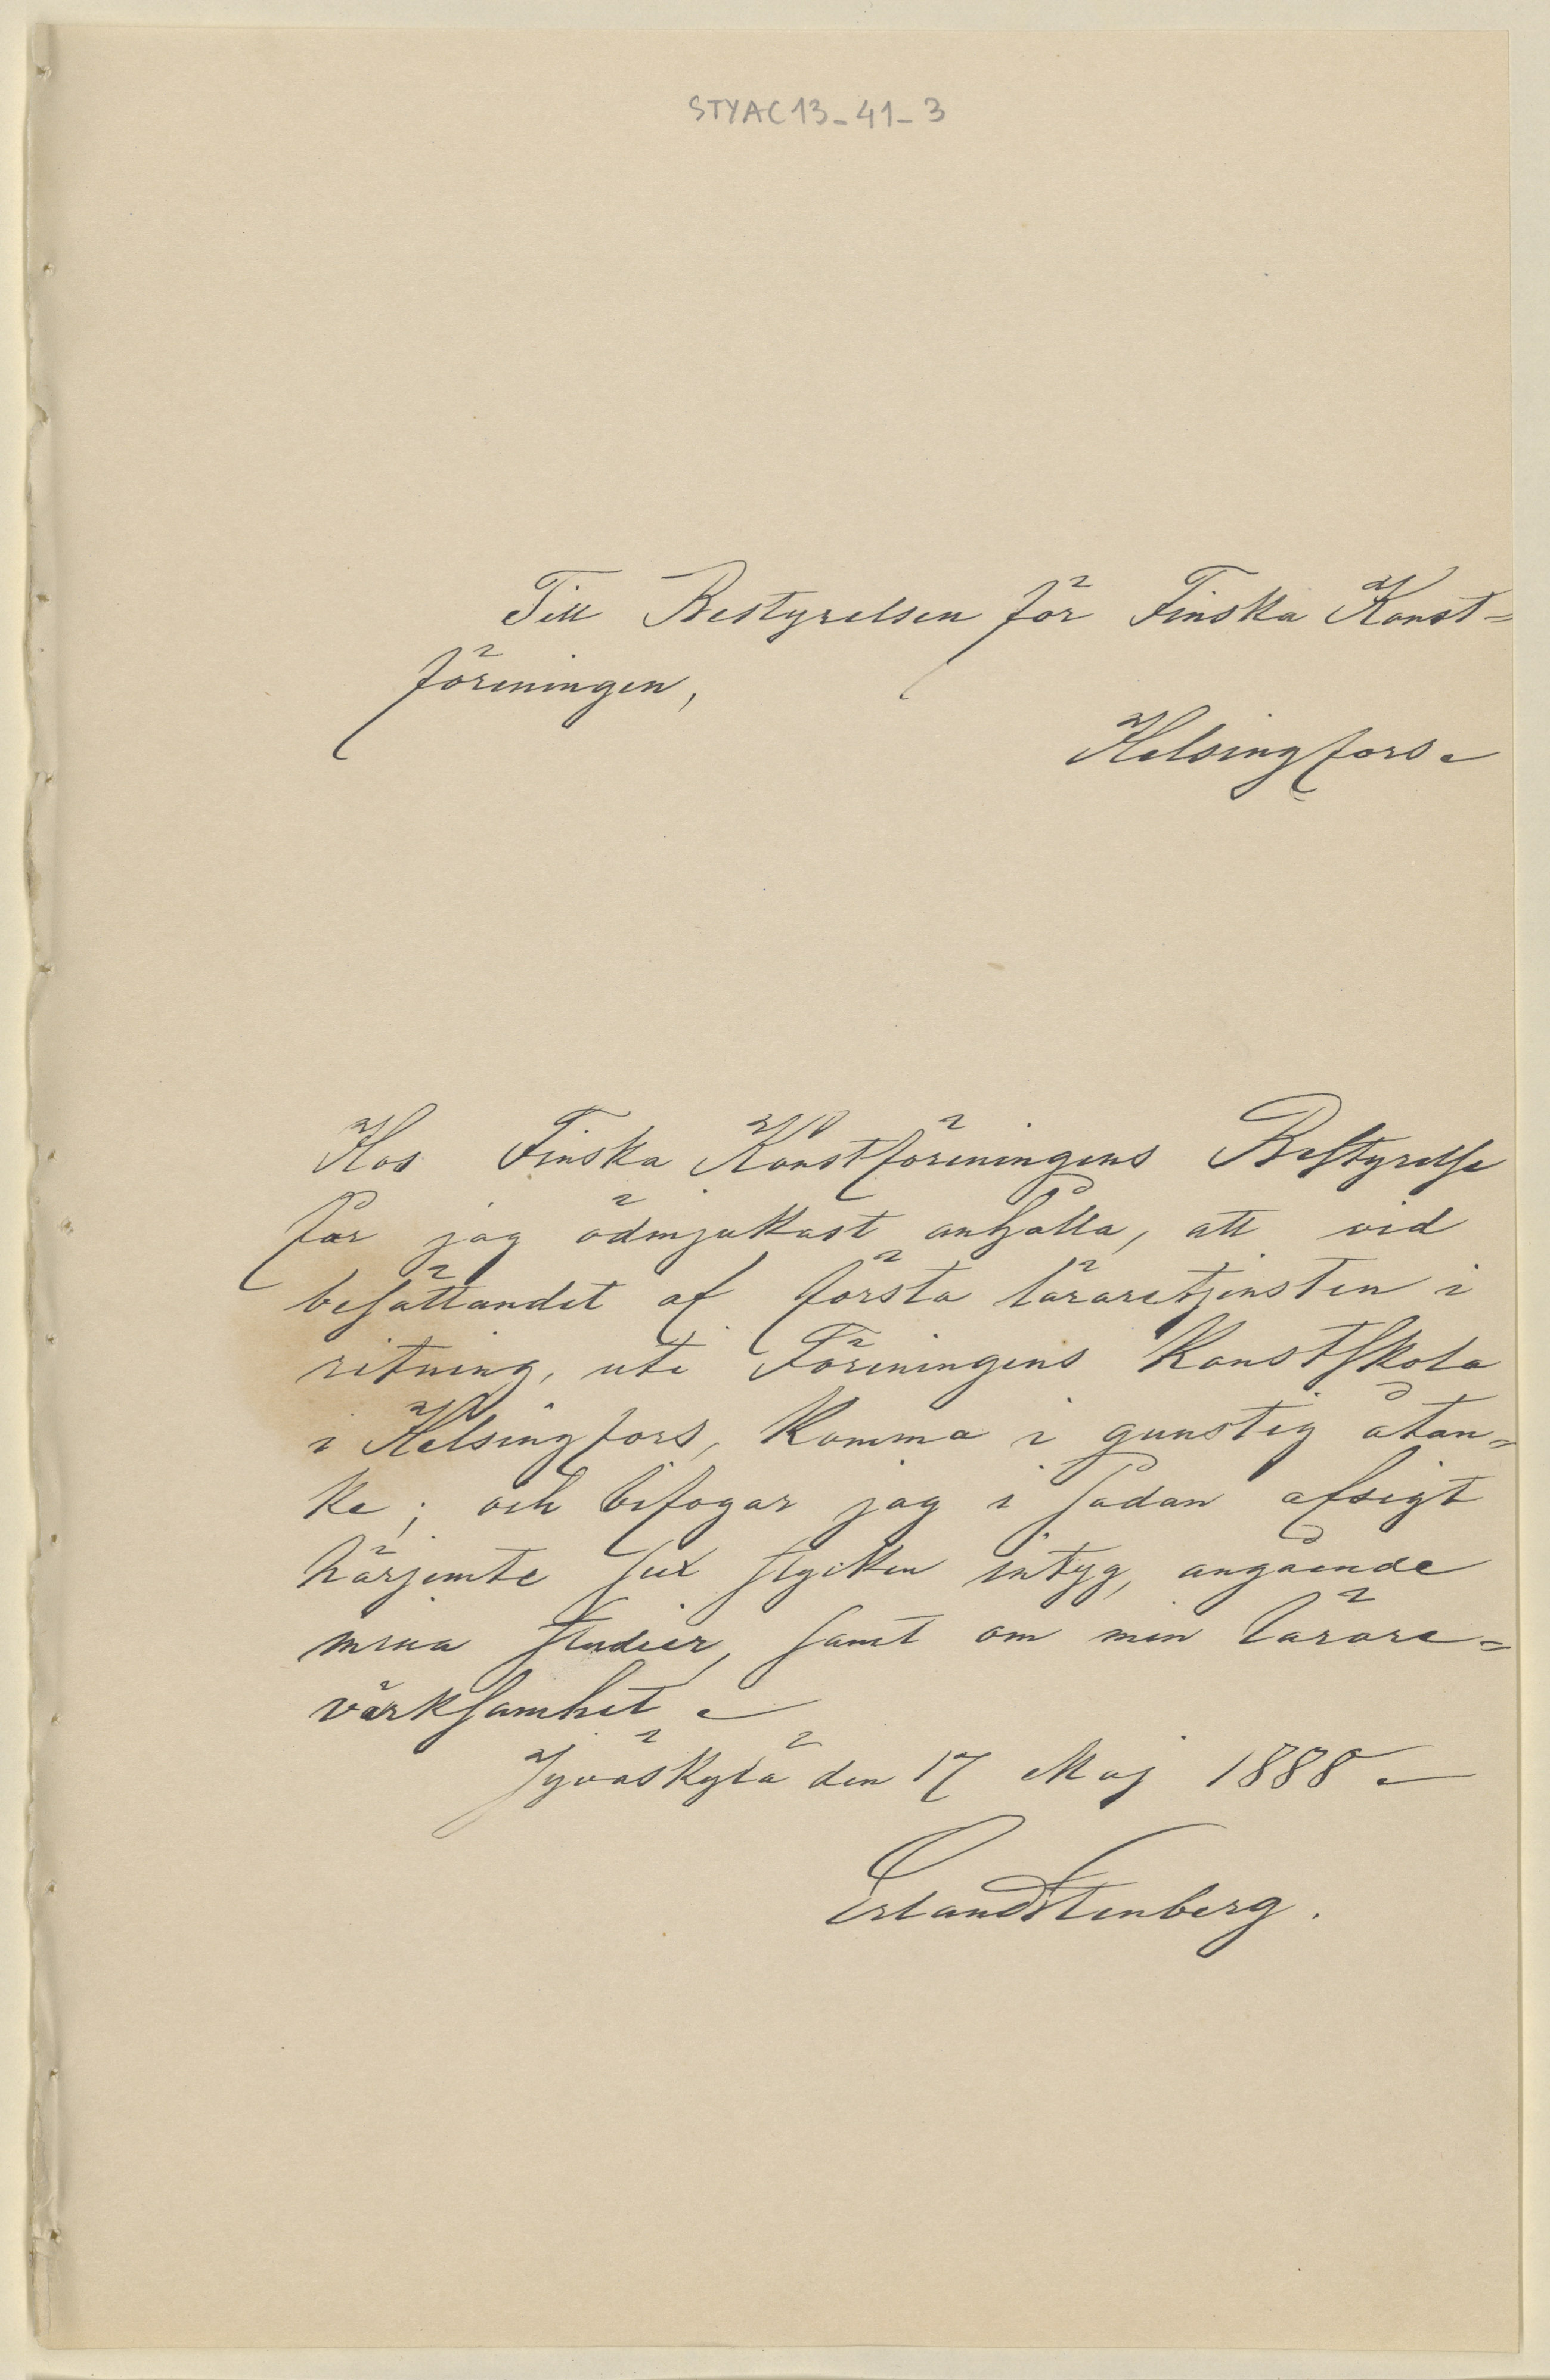 STYAC13-41-3
Till Bestyrelsen för Finska Konst=
föreningen,
Helsingfors.
Hos Finska Konstföreningens Bestyrelse
får jag ödmjukast anhålla, att vid
besättandet af första läraretjensten i
ritning, uti Föreningens Konstskola
i Helsingfors, komma i gunstig åtan=
ke; och bifogar jag i sådan afsigt
härjemte sex stycken intyg, angående
mina studier, samt om min lärare=
värksamhet.
Jyväskylä den 17 Maj 1888.
Erland Stenberg.